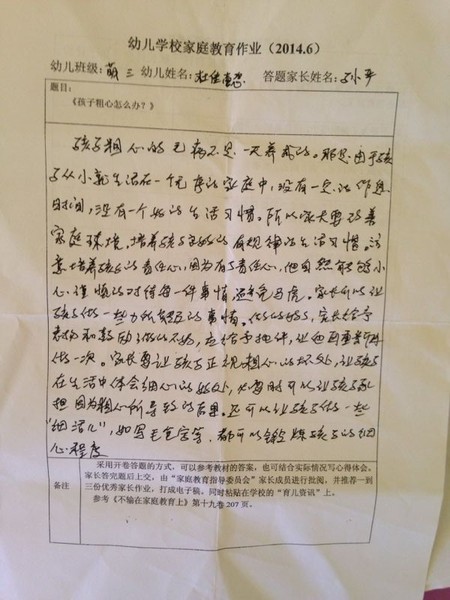 幼儿学校家庭教育作业（2014.6）
幼儿班级：萌三 幼儿姓名： 答题家长姓名：
题目：
《孩子粗心怎么办？》
孩子粗心的毛病不是一天养成的。那是由于孩
子从小就生活在一个无序的家庭中，没有一定的作息
时间，没有一个好的生活习惯。所以家长要改善
家庭环境，培养孩子良好的有规律的生活习惯。注
意培养孩子的责任心，因为有了责任心，他自然能够小
心谨慎的对待每一件事情，避免马虎。家长可以让
孩子做一些力所能及的事情。做的好的，家长给予
表扬和鼓励，做的不好，应给予批评，让他再重新
做一次。家长要让孩子正视粗心的坏处，让孩子
在生活中体会细心的好处，必要时可以让孩子承
担因为粗心所导致的后果。还可以让孩子做一些
“细活儿”，如写毛笔字等，都可以锻炼孩子的细
心程度
备注
采用开卷答题的方式，可以参考教材的答案，也可结合实际情况写心得体会。
家长答完题后上交，由“家庭教育指导委员会”家长成员进行批阅，并推荐一到
三份优秀家长作业，打成电子稿。同时粘贴在学校的“育儿资讯”上。
参考《不输在家庭教育上》第十九卷 207 页。